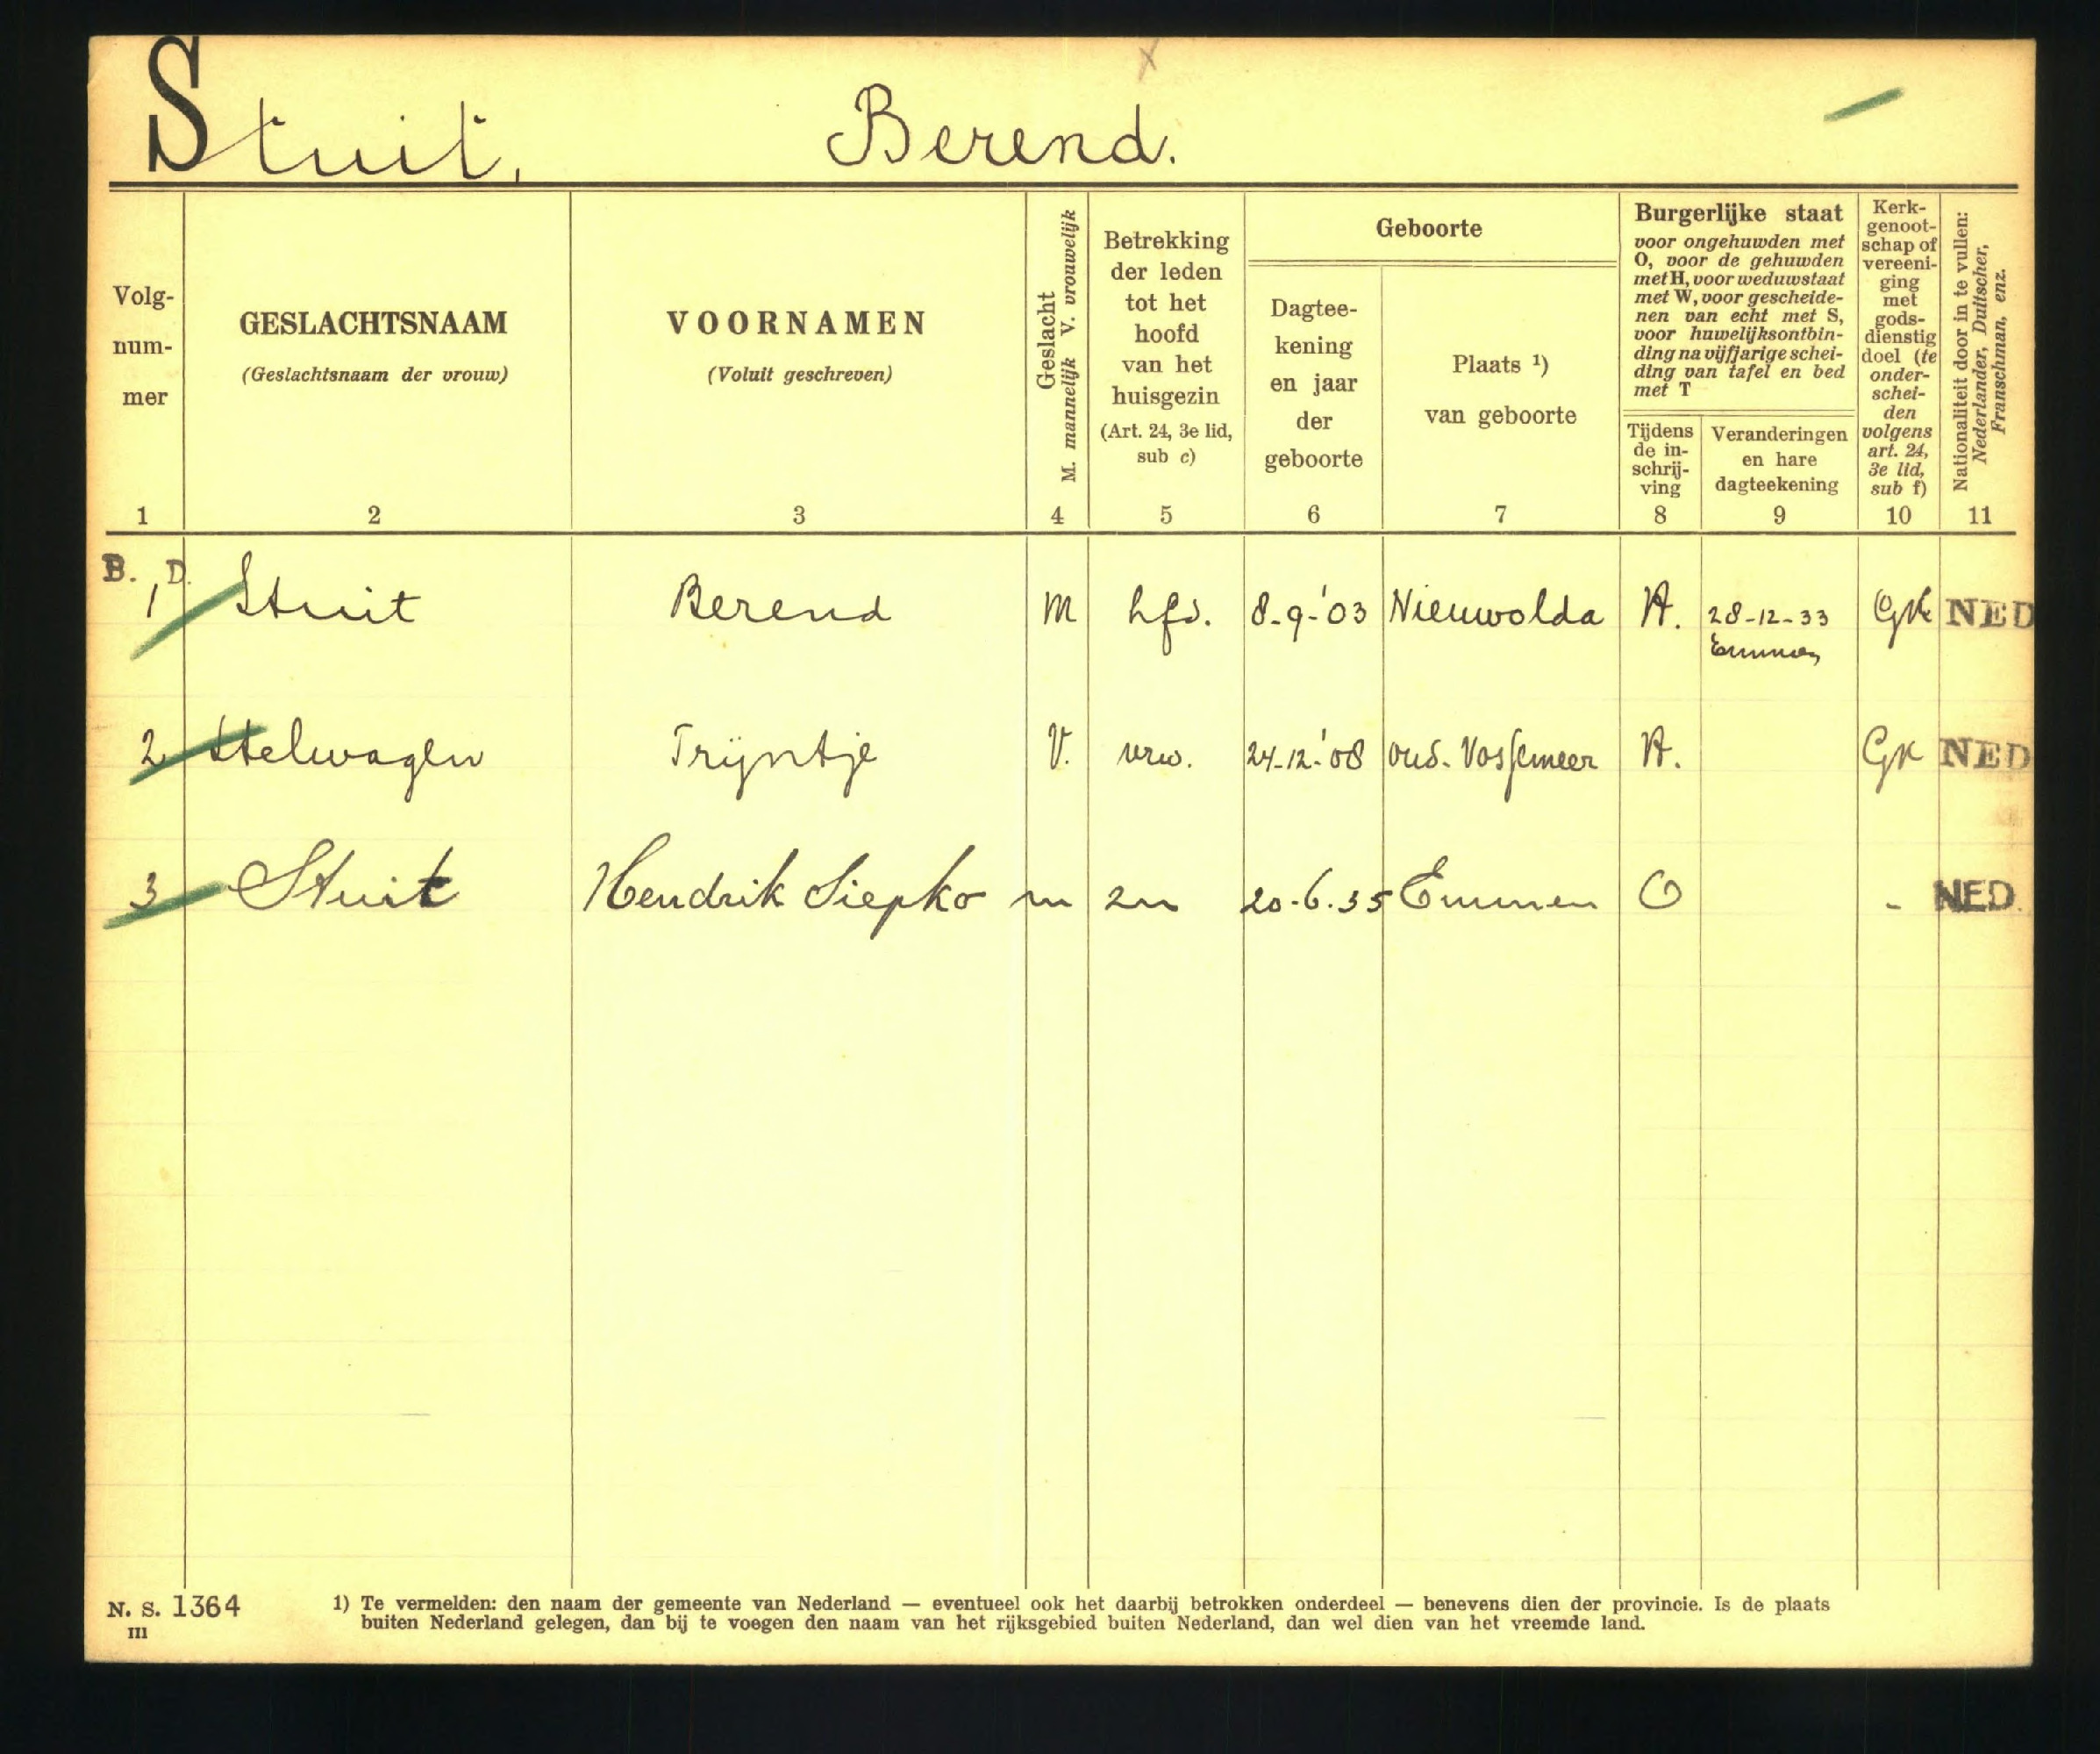 Stuit, Berend.
Volg-
num-
mer
1
GESLACHTSNAAM
(Geslachtsnaam der vrouw)
2
VOORNAMEN
(Voluit geschreven)
3
Geslacht
M. mannelijk V. vrouwelijk
4
Betrekking
der leden
tot het
hoofd
van het
huisgezin
(Art. 24, 3e lid,
sub c)
5
Geboorte
Dagtee-
kening
en jaar
der
geboorte
6
Plaats 1)
van geboorte
7
Burgerlijke staat
voor ongehuwden met
O, voor de gehuwden
met H, voor weduwstaat
met W, voor gescheide-
nen van echt met S,
voor huwelijksontbin-
ding na vijfjarige schei-
ding van tafel en bed
met T
Tijdens
de in-
schrij-
ving
8
Veranderingen
en hare
dagteekening
9
Kerk-
genoot-
schap of
vereeni-
ging
met
gods-
dienstig
doel (te
onder-
schei-
den
volgens
art. 24,
3e lid,
sub f)
10
Nationaliteit door in te vullen:
Nederlander, Duitscher,
Franschman, enz.
11
B. D.
1 Stuit Berend M hfd. 8-9-'03 Nieuwolda H. 28-12-33 GK NED
Emmen
2 Stelwagen Trijntje V. vrw. 24-12-'08 Oud-Vossemeer H. GK NED
3 Stuit Hendrik Siepko m zn 20-6.35 Emmen O - NED.
N. S. 1364
III
1) Te vermelden: den naam der gemeente van Nederland — eventueel ook het daarbij betrokken onderdeel — benevens dien der provincie. Is de plaats
buiten Nederland gelegen, dan bij te voegen den naam van het rijksgebied buiten Nederland, dan wel dien van het vreemde land.